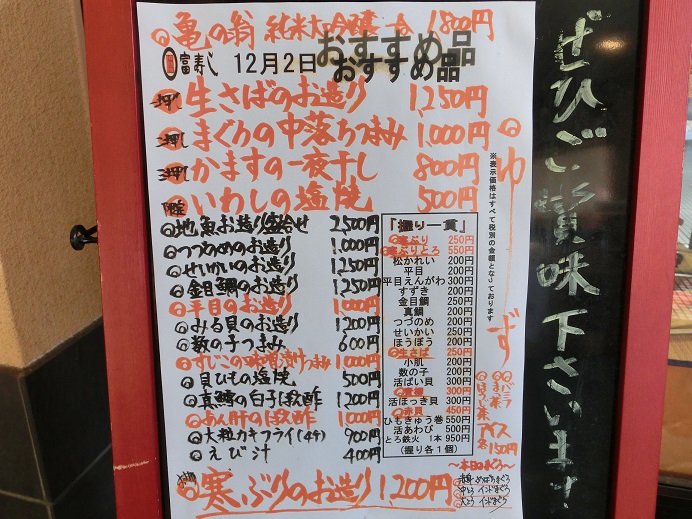 ◎亀の翁 純米大吟醸 一合 1,800円
富寿し 12月2日 おすすめ品
おすすめ品
一押し 生さばのお造り 1,250円
二押し まぐろの中落ちつまみ 1,000円
三押し かますの一夜干し 800円
◎いわしの塩焼 500円
◎地魚お造り盛合せ 2,500円
◎つづめのお造り 1,000円
◎せいかいのお造り 1,250円
◎金目鯛のお造り 1,250円
◎平目のお造り 1,000円
◎みる貝のお造り 1,200円
◎数の子つまみ 600円
◎すじこの味噌漬けつまみ 1,000円
◎貝ひもの塩焼 500円
◎真鱈の白子ぽん酢 1,200円
◎あん肝のぽん酢 1,000円
◎大粒カキフライ(4ケ) 900円
◎えび汁 400円
◎寒ぶりのお造り 1,200円
『握り一貫』
◎寒ぶり 250円
◎寒ぶりとろ 550円
松かれい 200円
平目 200円
平目えんがわ 300円
すずき 200円
金目鯛 200円
真鯛 200円
つづのめ 200円
せいかい 200円
ほうぼう 200円
◎生さば 250円
小肌 200円
数の子 200円
活ばい貝 300円
300円
活ほっき貝 300円
◎赤貝 450円
ひもきゅう巻 550円
活あわび 500円
とろ鉄火 1本 950円
(握り各1個)
※表示価格はすべて税別の金額となっております
◎ゆず
◎バニラ
◎抹茶
◎ほうじ茶
アイス
各150円
〜本日のまぐろ〜
赤身・めばちまぐろ
中とろ インドまぐろ
大とろ インドまぐろ
ぜひご賞味下さいませ